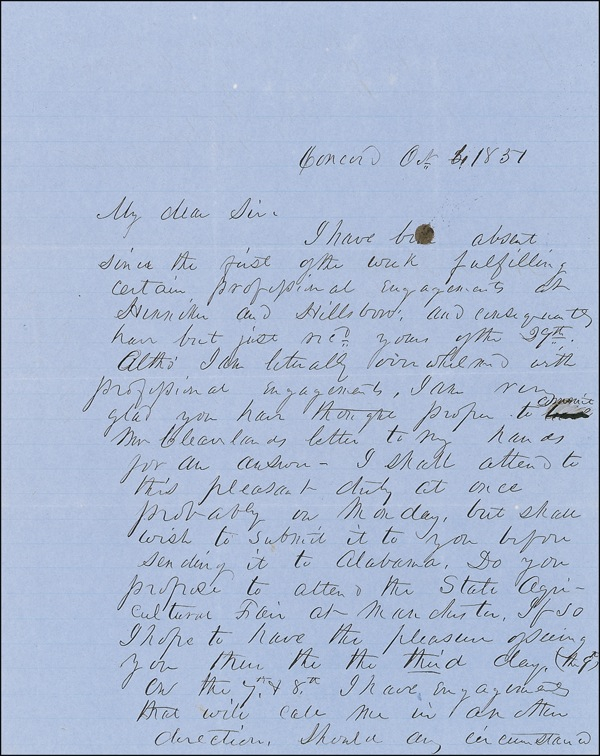 Concord Oct 4, 1851
My dear Sir.
I have been absent
since the first of the week fulfilling
certain professional engagements at
Henniker and Hillsboro; and consequently
have but just rec'd yours of the 29th.
Altho' I am literally overwhelmed with
professional engagements, I am very
glad you have thought proper to commit
Mr Cleavelands letter to my hands
for an answer - I shall attend to
this pleasant duty at once
probably on Monday, but shall
wish to submit it to you before
sending it to Alabama. Do you
propose to attend the State Agri-
cultural Fair at Manchester. If so
I hope to have the pleasure of seeing
you then the the third day, (the 9th)
On the 7th & 8th I have engagements
that will call me in another
direction. Should any circumstance